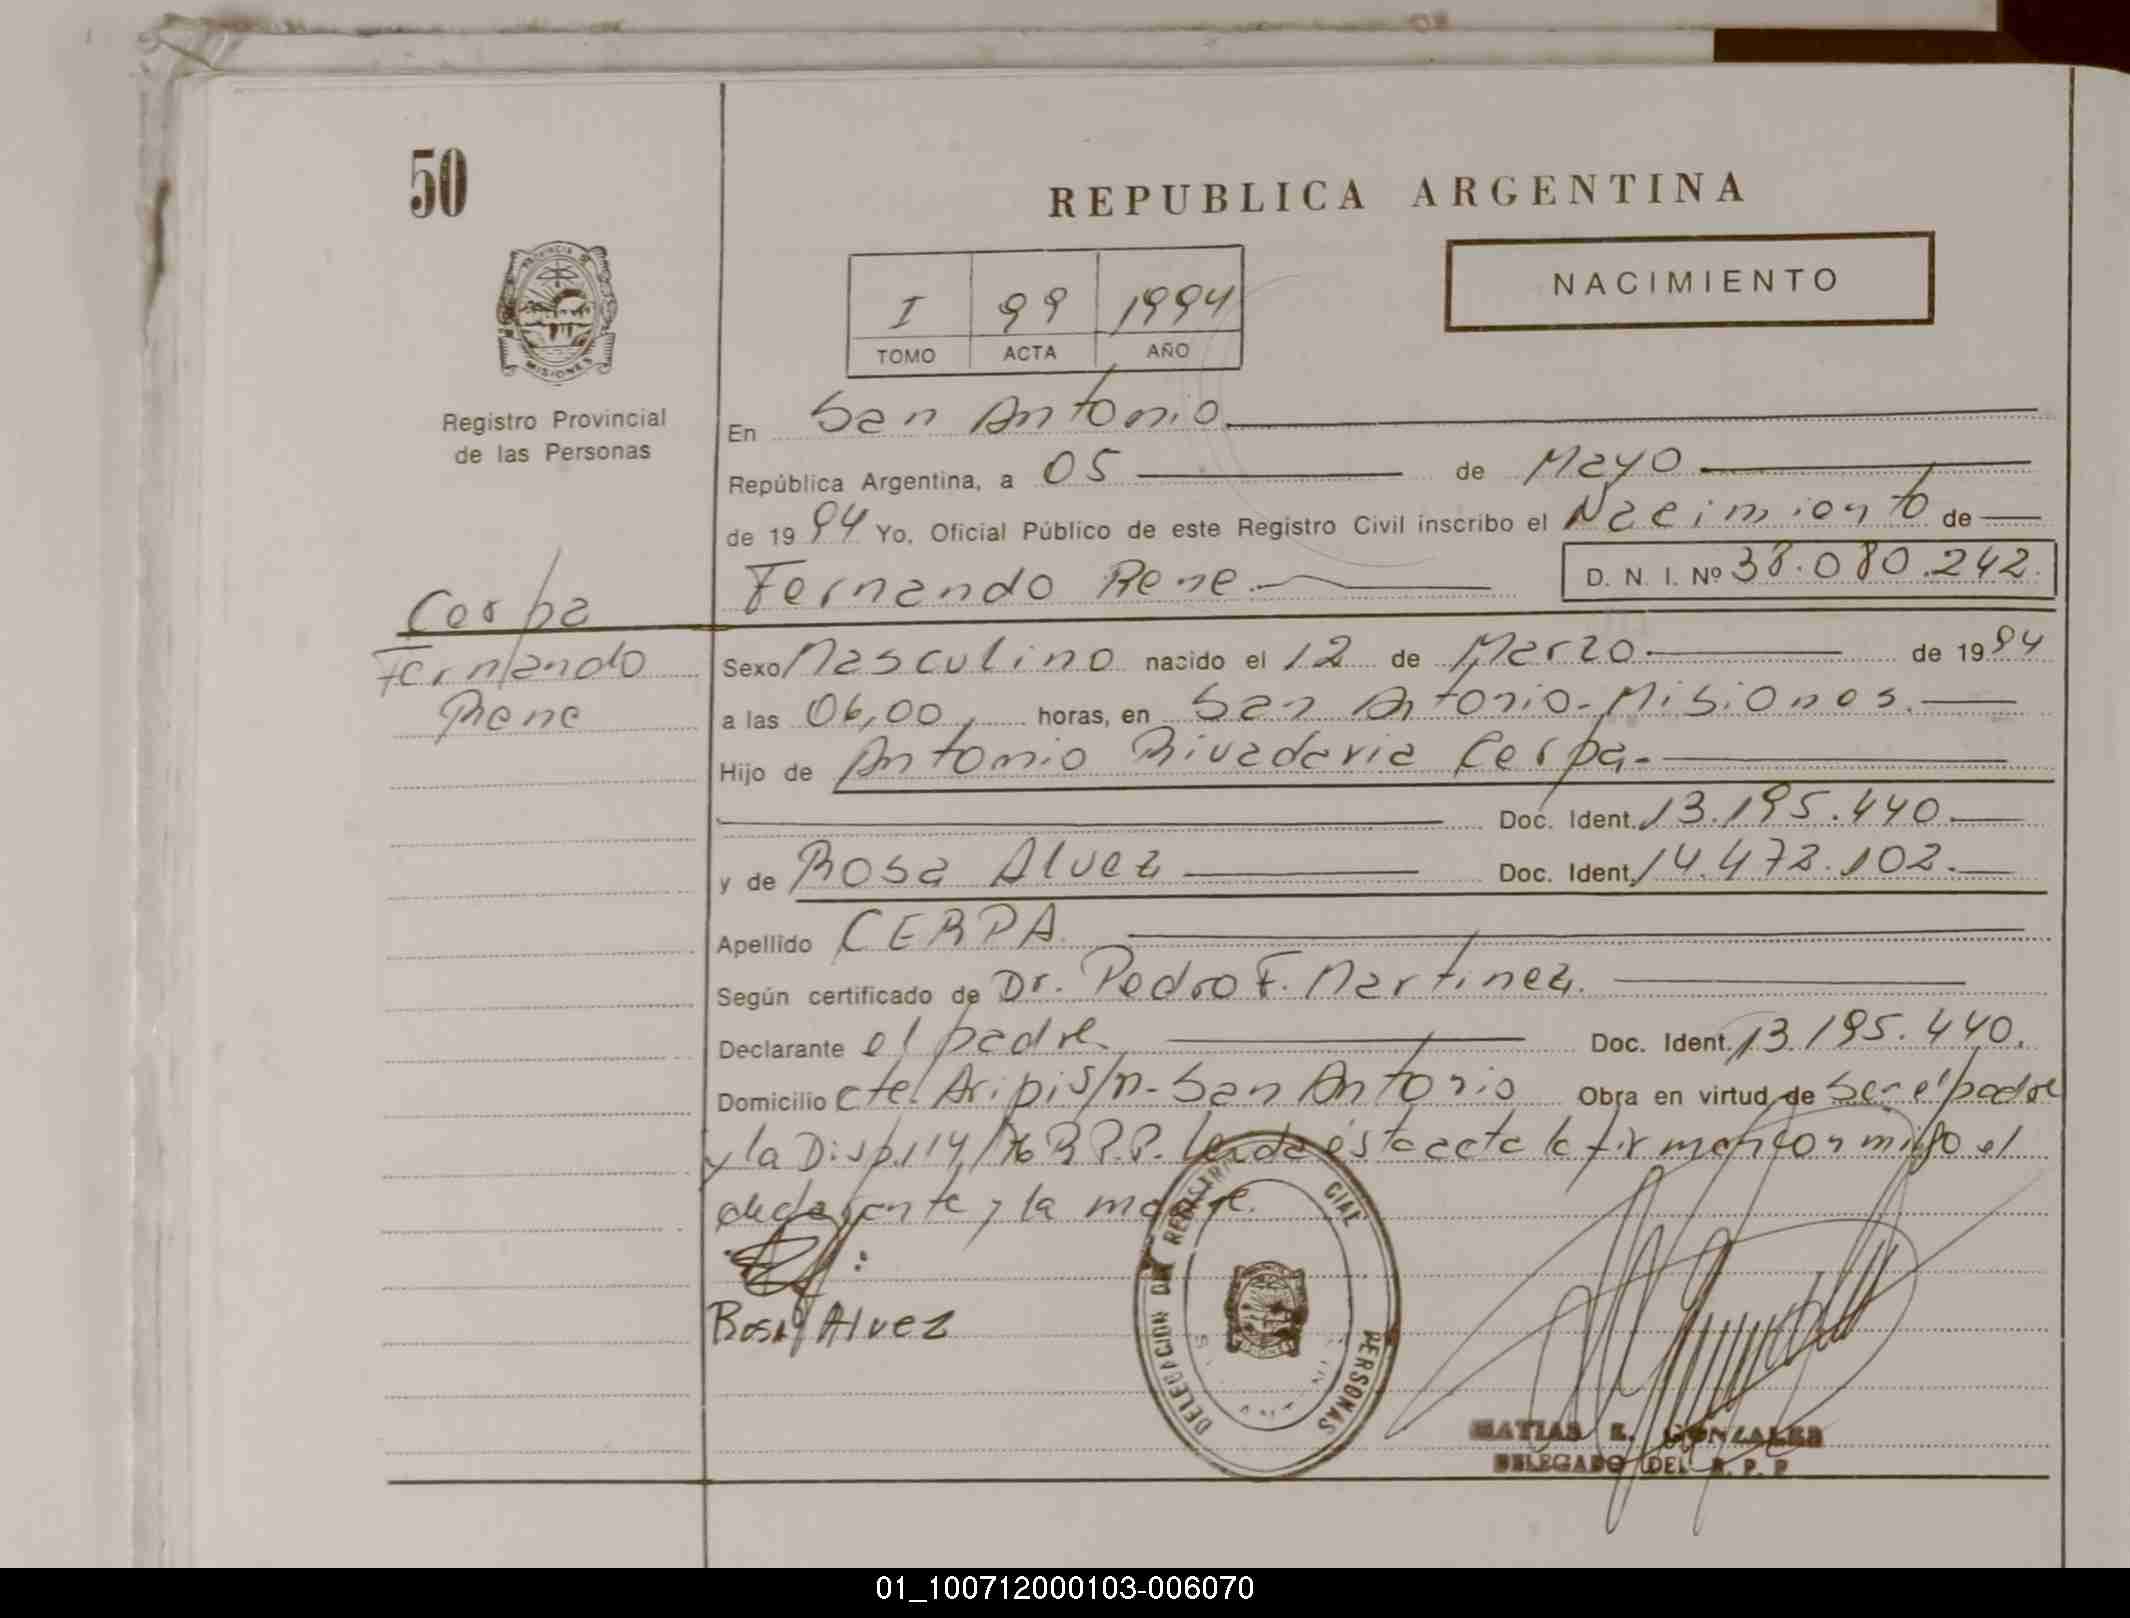 50
REPUBLICA ARGENTINA
NACIMIENTO
I 99 1994
TOMO ACTA AÑO
PROVINCIA DE
MISIONES
Registro Provincial
de las Personas
En San Antonio
República Argentina, a 05 de Mayo
de 1994 Yo, Oficial Público de este Registro Civil inscribo el Nacimiento de
Fernando Rene. D. N. I. Nº 38.080.242.
Cerpa
Fernando
Rene
Sexo Masculino nacido el 12 de Marzo de 1994
a las 06,00 horas, en San Antonio-Misiones.
Hijo de Antonio Rivadavia Cerpa.
Doc. Ident. 13.195.440
y de Rosa Alvez Doc. Ident. 14.472.102.
Apellido CERPA
Según certificado de Dr. Pedro F. Martinez.
Declarante el padre Doc. Ident. 13.195.440.
Domicilio cte. Aripi s/n-San Antonio Obra en virtud de ser el padre
y la Disp. 114/76 R.P.P. Leida ésta acta la firman conmigo el
declarante y la madre.
Rosa Alvez
DELEGACION DEL REGISTRO CIAL PERSONAS
MATIAS E. GONZALEZ
DELEGADO DEL R. P. P
01_100712000103-006070